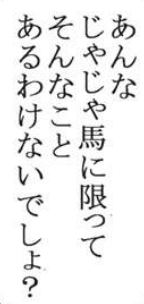 あんな
じゃじゃ馬に限って
そんなこと
あるわけないでしょ？